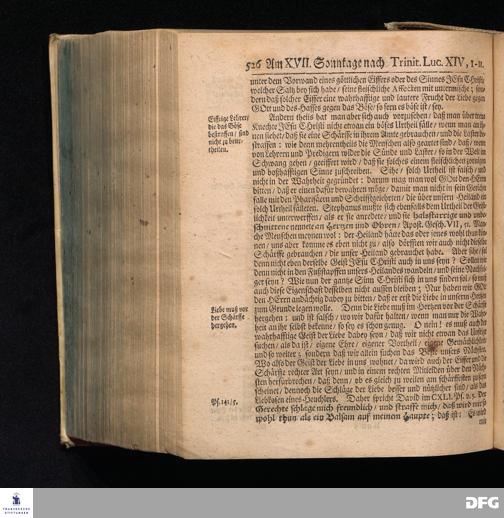 526 Am XVII. Sonntage nach Trinit. Luc. XIV, 1-11.
unter dem Vorwand eines göttlichen Eiffers oder des Sinnes JEsu Christi
welcher Saltz bey sich habe / seine fleischliche Affecten mit untermische; son-
dern daß solcher Eiffer eine wahrhafftige und lautere Frucht der Liebe gegen
GOtt und des Hasses gegen das Böse / so fern es böse ist / sey.
Eiffrige Lehrer/
die das Böse
bestraffen / sind
nicht zu beur-
theilen.
Andern theils hat man aber sich auch vorzusehen / daß man über treue
Knechte JEsu Christi nicht etwan ein böses Urtheil fälle / wenn man an ih-
nen siehet / daß sie eine Schärffe in ihrem Amte gebrauchen / und die Laster be-
straffen: wie denn mehrentheils die Menschen also geartet sind / daß / wenn
von Lehrern und Predigern wider die Sünde und Laster / so in der Welt im
Schwang gehen / geeiffert wird / daß sie solches einem fleischlichen zornigen
und boßhafftigen Sinne zuschreiben. Sihe / solch Urtheil ist falsch / und
nicht in der Wahrheit gegründet: darum mag man wol GOtt den HErrn
bitten / daß er einen dafür bewahren möge / damit man nicht in sein Gericht
falle mit den Pharisäern und Schrifftgelehrten / die über unsern Heiland ein
solch Urtheil fälleten. Stephanus mußte sich ebenfalls dem Urtheil der Gott-
losigkeit unterwerffen / als er sie anredete / und sie halsstarrige und unbe-
schnittene nennete an Hertzen und Ohren / Apost. Gesch. VII, 51. Man-
che Menschen meynen wol: der Heiland hätte das oder jenes wohl thun kön-
nen / uns aber komme es eben nicht zu / also dörfften wir auch nicht dieselbe
Schärffe gebrauchen / die unser Heiland gebrauchet habe. Aber sihe / sol
denn nicht eben derselbe Geist JEsu Christi auch in uns seyn? Sollen wir
denn nicht in den Fußstapffen unsers Heilandes wandeln / und seine Nachfol-
ger seyn? Wie nun der gantze Sinn Christi sich in uns finden sol / so muß
auch diese Eigenschafft desselben nicht aussen bleiben; Nur haben wir GOtt
den HErrn andächtig dabey zu bitten / daß er erst die Liebe in unserm Hertzen
zum Grunde legen wolle.
Liebe muß vor
der Schärffe
hergehen.
Denn die Liebe muß im Hertzen vor der Schärffe
hergehen; und ist falsch / wo wir dafür halten / wenn man nur die Wahr-
heit an ihr selbst bekenne / so sey es schon genug. O nein! es muß auch der
wahrhafftige Geist der Liebe dabey seyn / daß wir nicht etwan das Unsere
suchen / als da ist / eigene Ehre / eigener Vortheil / eigene Gemächlichkeit
und so weiter; sondern daß wir allein suchen das Beste unsers Nächsten.
Wo also der Geist der Liebe in uns wohnet / da wird auch der Eiffer und die
Schärffe rechter Art seyn / und in einem rechten Mitleiden über den Näch-
sten herfürbrechen / daß denn / ob es gleich zuweilen am schärffesten zu seyn
scheinet / dennoch die Schläge der Liebe besser und nützlicher sind / als das
Liebkosen eines Heuchlers.
Ps. 141/5.
Daher spricht David im CXLI. Ps. v. 5. Der
Gerechte schlage mich freundlich / und straffe mich / daß wird mir so
wohl thun als ein Balsam auf meinem Haupte; das ist: Es wird
mir
FRANCKESCHE
STIFTUNGEN
DFG